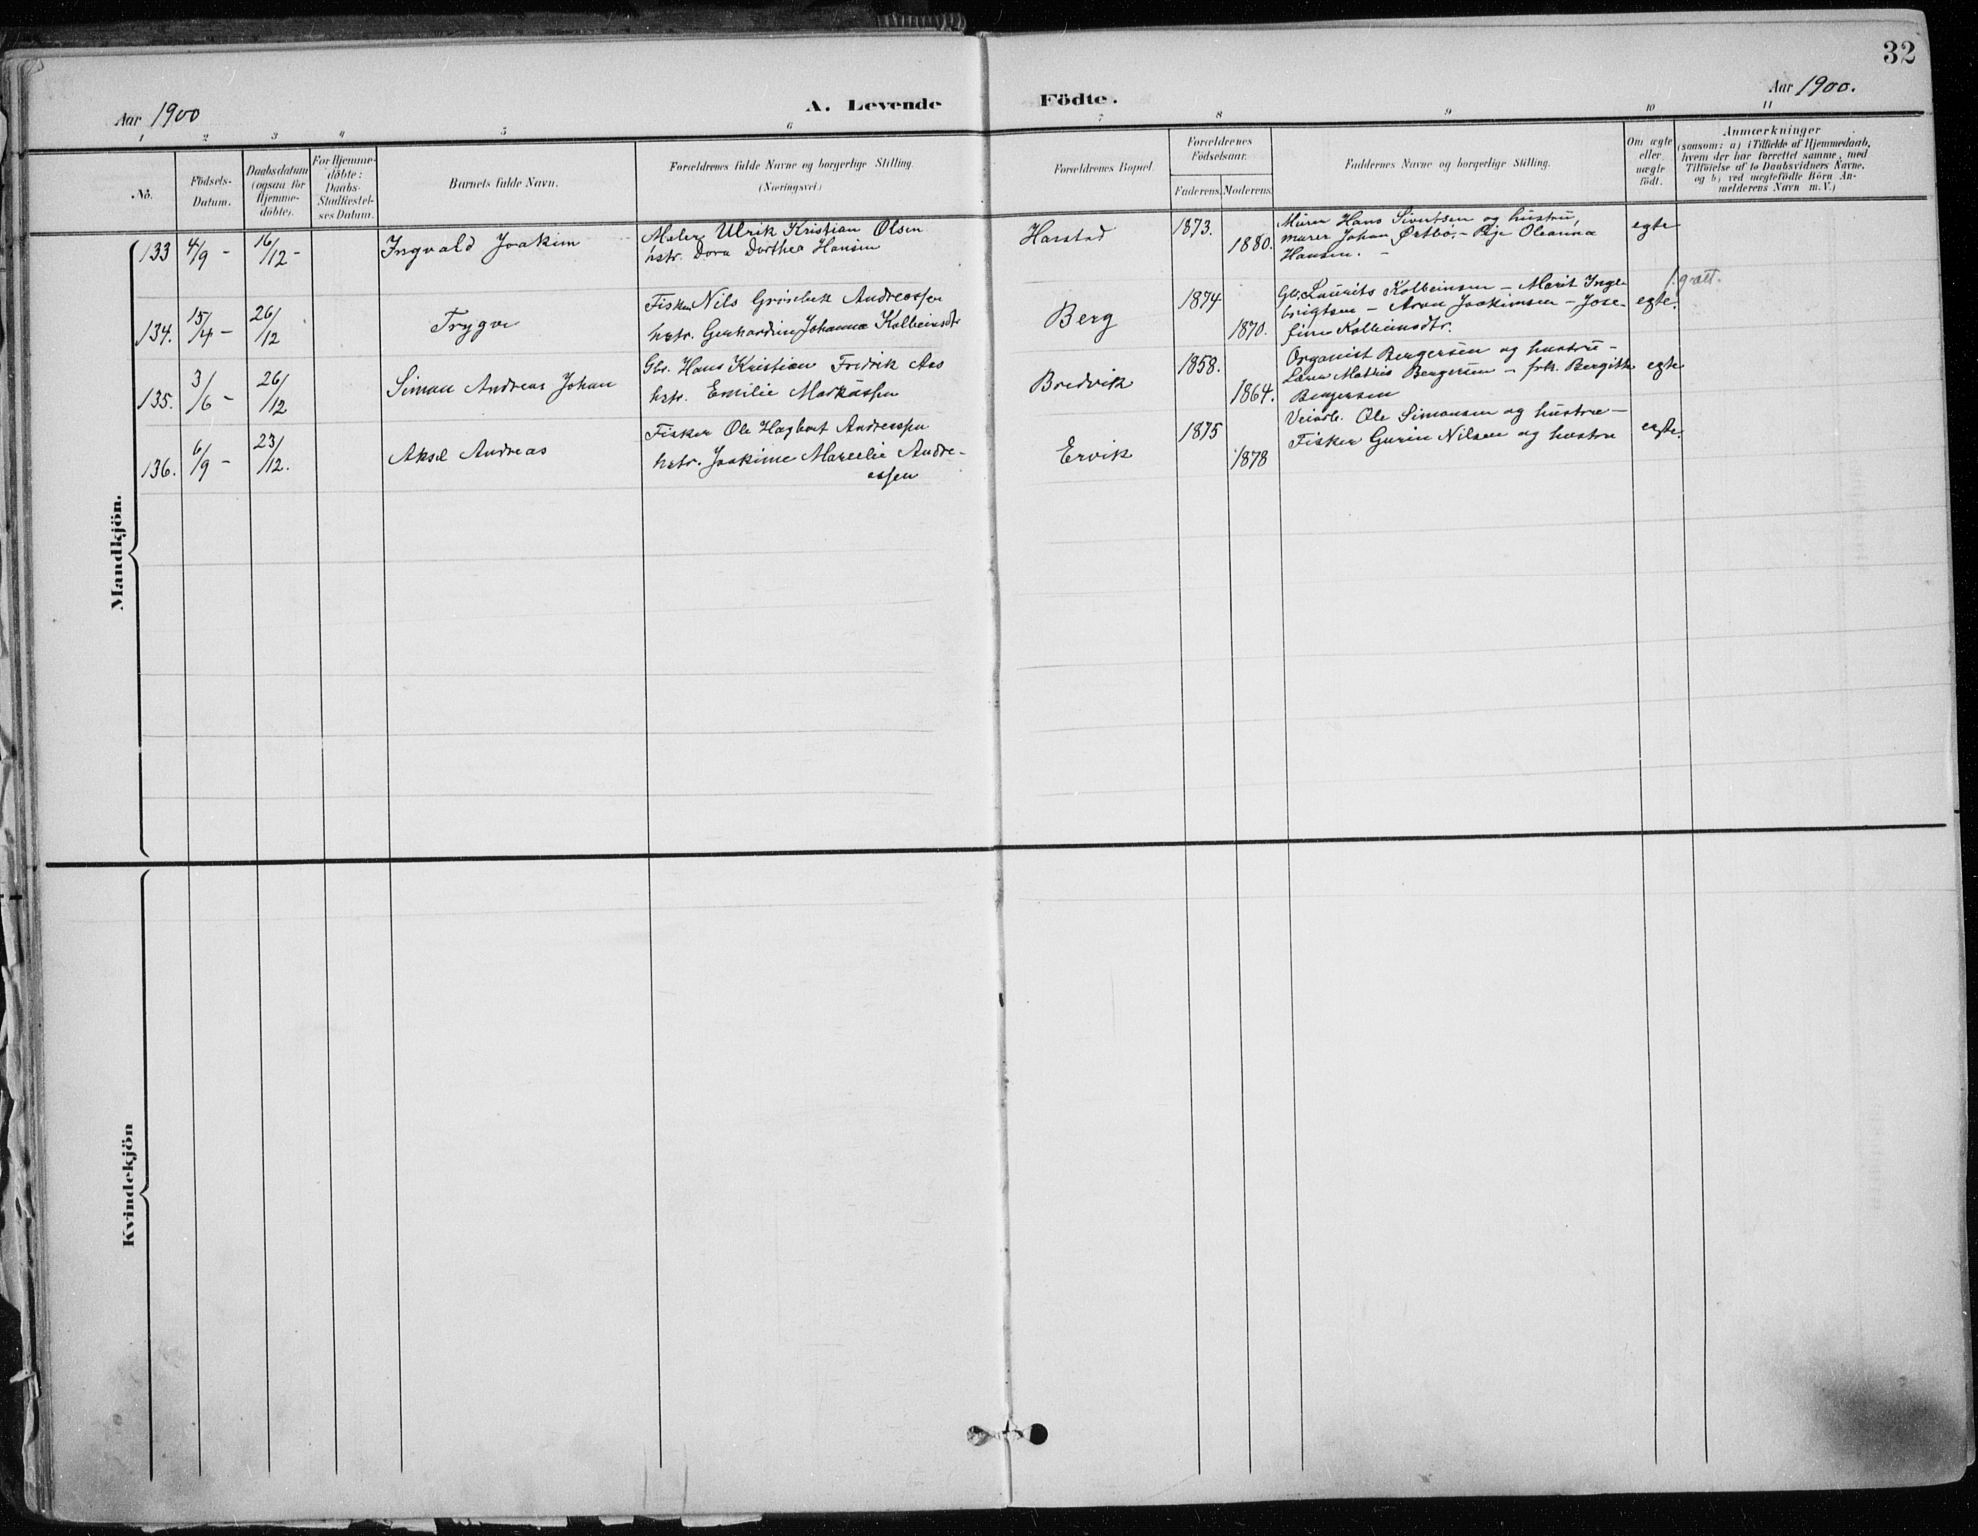 32
Aar 1900
A. Levende
Födte.
Aar 1900.
1 2 3 4 5 6 7 8 9 10 11
No.
Födsels-
Datum.
Daabsdatum
(ogsaa for
Hjemme-
döbte).
For Hjemme-
döbte:
Daabs-
Stadfæstel-
ses Datum.
Barnets fulde Navn.
Forældrenes fulde Navne og borgerlige Stilling.
(Næringsvei.)
Forældrenes Bopæl.
Forældrenes
Födselsaar.
Faderens. Moderens.
Faddernes Navne og borgerlige Stilling.
Om ægte
eller
uægte
født.
Anmærkninger
(saasom: a) i Tilfælde af Hjemmedaab,
hvem der har forrettet samme, med
Tilføielse af to Daabsvidners Navne,
og b) ved uægtefödte Börn An-
melderens Navn m. V.)
Mandkjön.
133 4/9 - 16/12 - Ingvald Joakim
Maler Ulrik Kristian Olsen
hstr. Dora Dorthea Hansen
Harstad
1873.
1880.
Murer Hans Sivertsen og hustru,
murer Johan Ørtbö. - Pige Oleanna
Hansen. -
egte
134. 15/4 - 26/12 Trygve
Fisker Nils Andreassen
hstr. Gerhardine Johanna Kolbeinsdtr
Berg
1874
1870.
Gbr. Laurits Kolbeinsen - Marit Inge
brigtsen - Aron Joakimsen - Jose-
fine Kolbeinsdtr.
egte.
135. 3/6 - 26/12 Simon Andreas Johan
Gbr. Hans Kristian Fredrik Aas
hstr. Emilie Markussen
Bredvik
1858.
1864.
Organist Bergersen og hustru -
Lærer Mathis Bergersen - frk. Bergitte
Bergersen
egte
136. 6/9 - 23/12. Aksel Andreas
Fisker Ole Hagbart Andreassen
hstr. Joakime Marselie Andre-
assen
Ervik
1875
1878
Veiarb. Ole Simonsen og hustru -
Fisker Gurin Nilsen og hustru
egte.
Kvindekjön